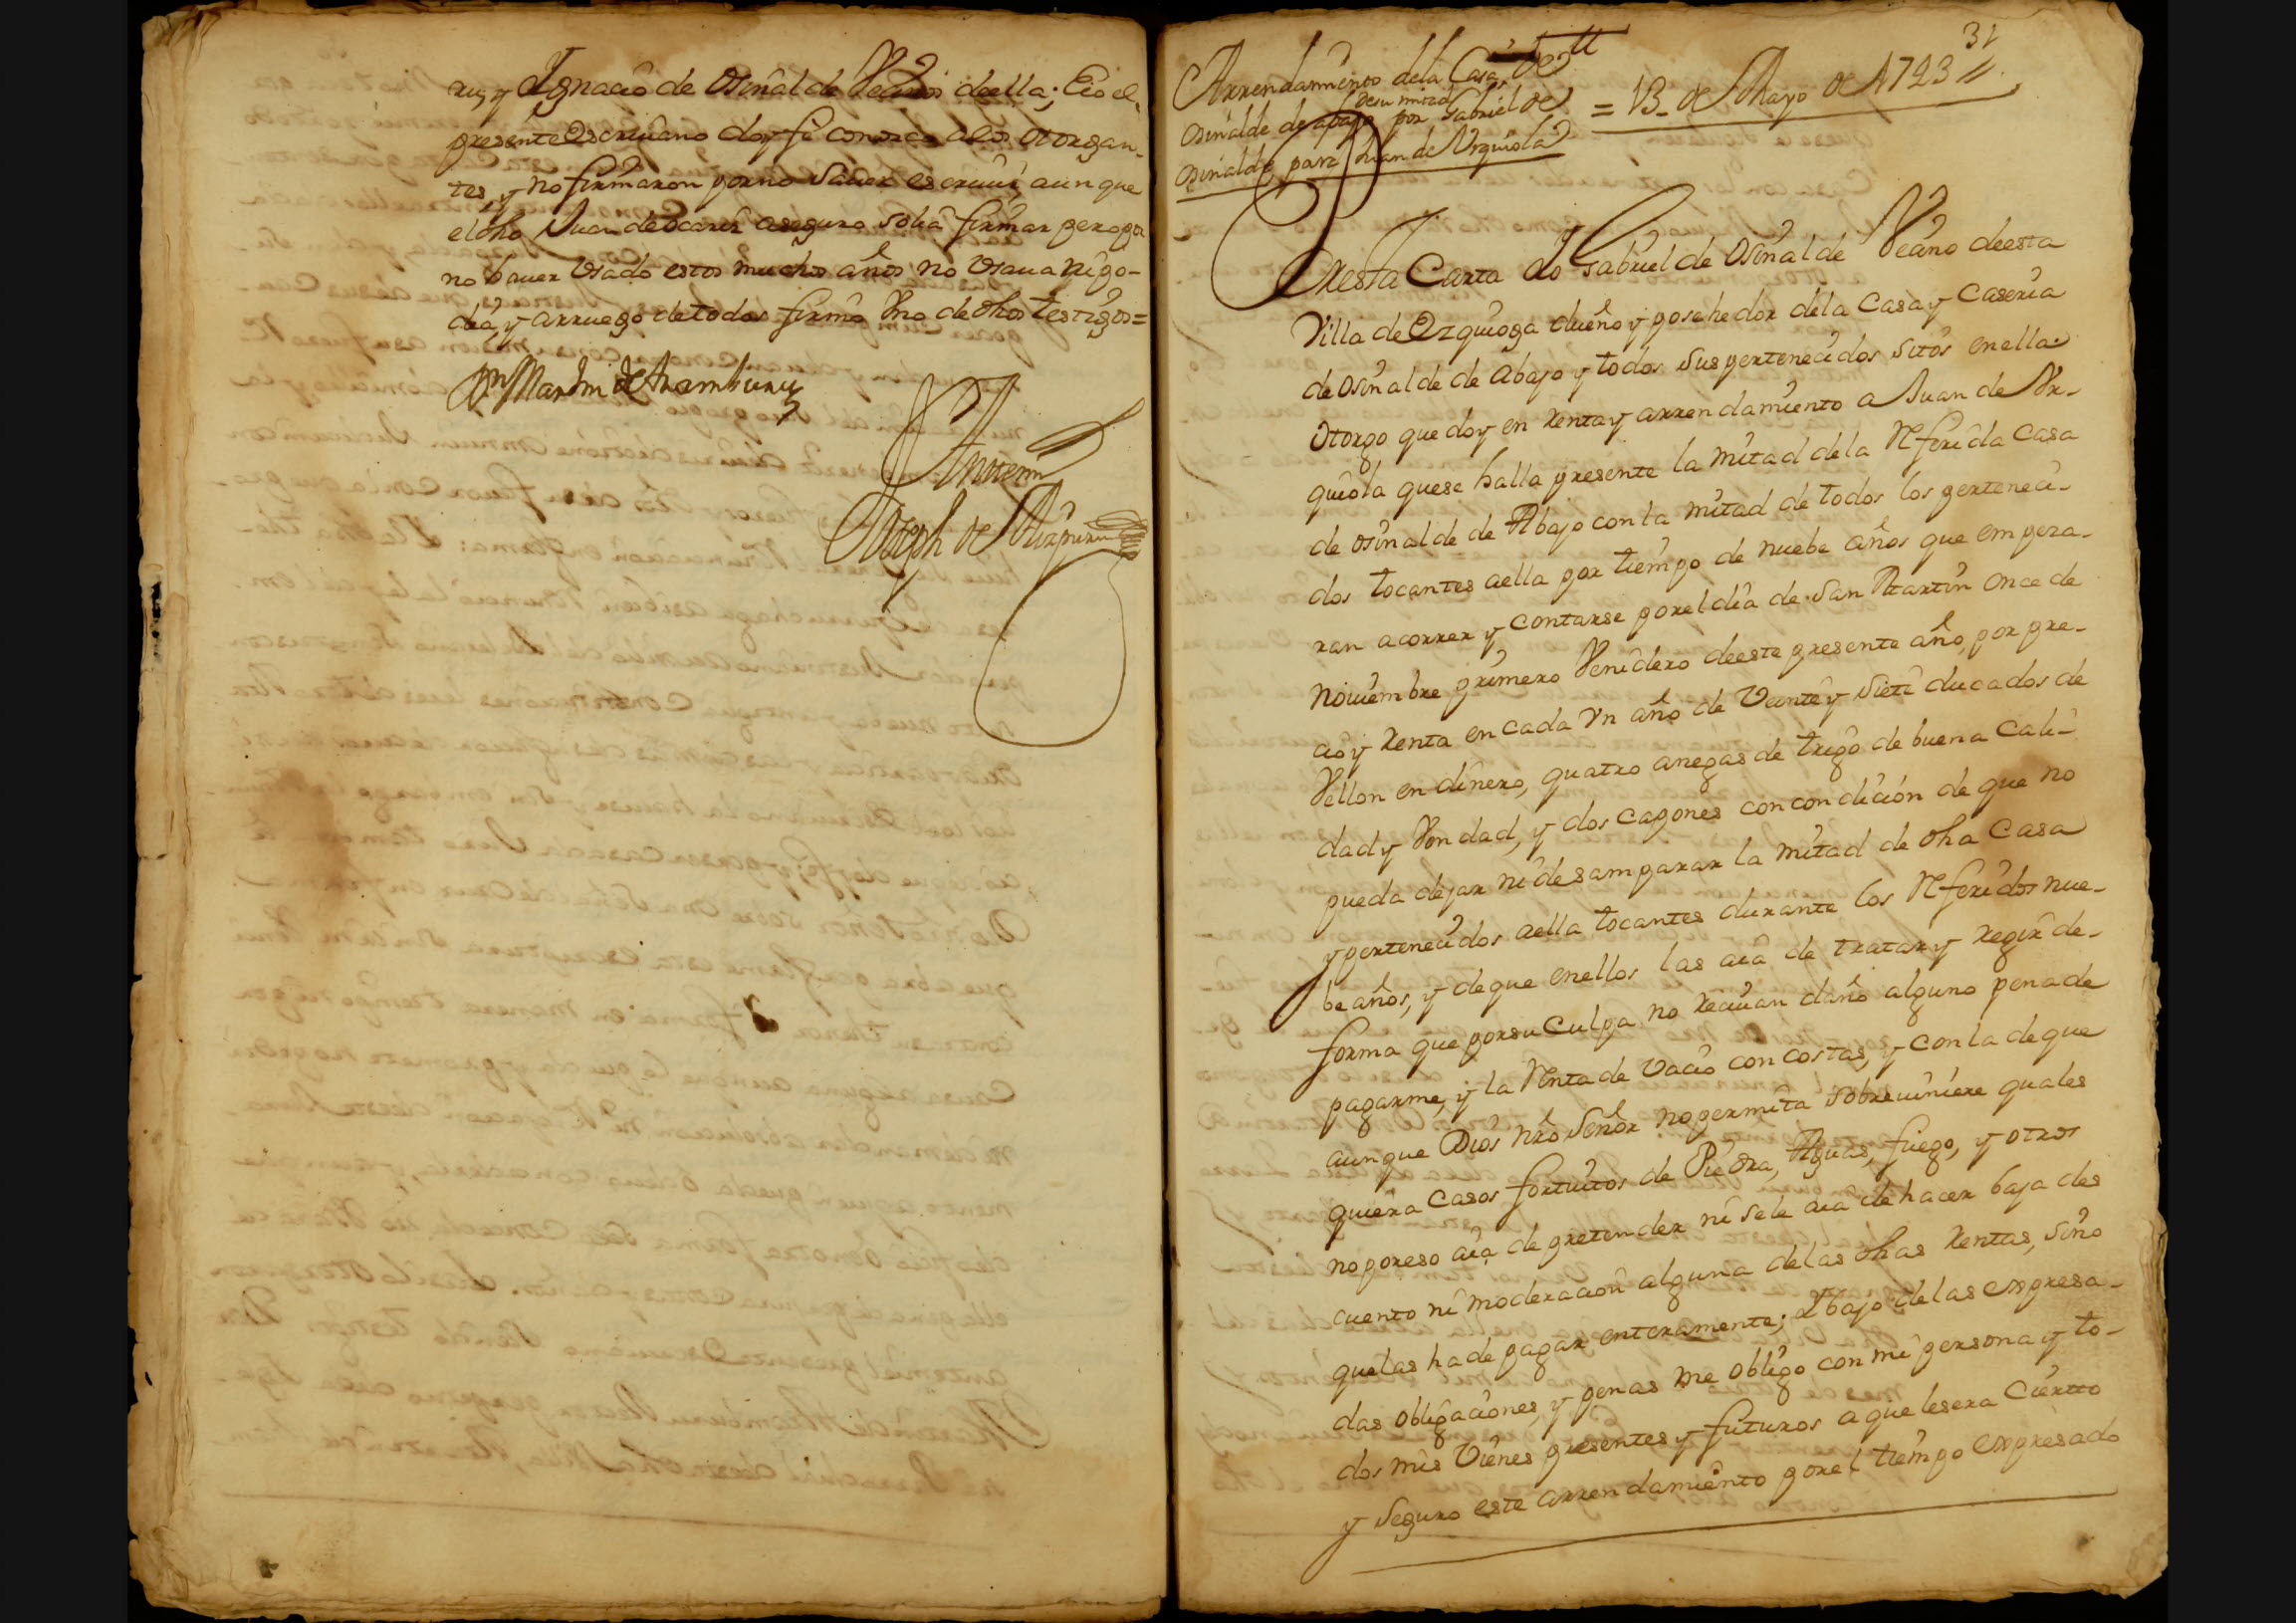 rus y Ygnacio de Osinalde Veçinos deella; Eio el
presente Escriuano doy fe conozco alos otorgan-
tes, y no firmaron por no sauer escriuir, aunque
el dho Juan de ocariz aseguro solia firmar pero por
no hauer Vsado estos muchos años no Vsaua ni po-
dia, y arruego de todos firmó Vno de dhos testigos=
Dn Martin de Aramburu
Antemi
Joseph de Aizpuru
31
Arrendamiento dela Casa de
Osinalde de abajo por Gabriel de
desu mitad
Osinalde, para Juan de Vrquiola
= 13 de Mayo de 1723 //.
Por esta Carta Yo Gabriel de Osinalde Veçino deesta
Villa de Ezquioga dueño y posehedor dela Casa y Caseria
de Osinalde de Abajo y todos sus pertenecidos sitos enella
Otorgo que doy en Renta y arrendamiento a Juan de Vr-
quiola quese halla presente la mitad dela Referida Casa
de osinalde de Abajo con la mitad de todos los perteneci-
dos tocantes aella por tiempo de nuebe años que empeza-
ran acorrer y contarse por el dia de San Martin once de
Nouiembre primero Venidero deeste presente año, por pre-
cio y Renta en cada Vn año de Veinte y siete ducados de
Vellon en dinero, quatro anegas de trigo de buena Cali-
dad y Vondad, y dos capones con condición de que no
pueda dejar ni desamparar la mitad de dha Casa
y pertenecidos aella tocantes durante los Referidos nue-
be años, y deque enellos las aia de tratar y Regir de
forma que porsu Culpa no Reciuan daño alguno pena de
pagarme, y la Renta de Vacio con costas, y con la de que
aunque Dios nro Señor no permita sobreuiniere quales
quiera Casos fortuitos de Piedra, Aguas, fuego, y otros
no poreso aia de pretender ni sele aia de hacer baja des
cuento ni moderacion alguna delas dhas Rentas, sino
quelas hade pagar enteramente; Ebajo delas expresa-
das obligaciones, y penas me obligo con mi persona y to-
dos mis Vienes presentes y futuros a que lesera Cierto
y seguro este arrendamiento por el tiempo expresado